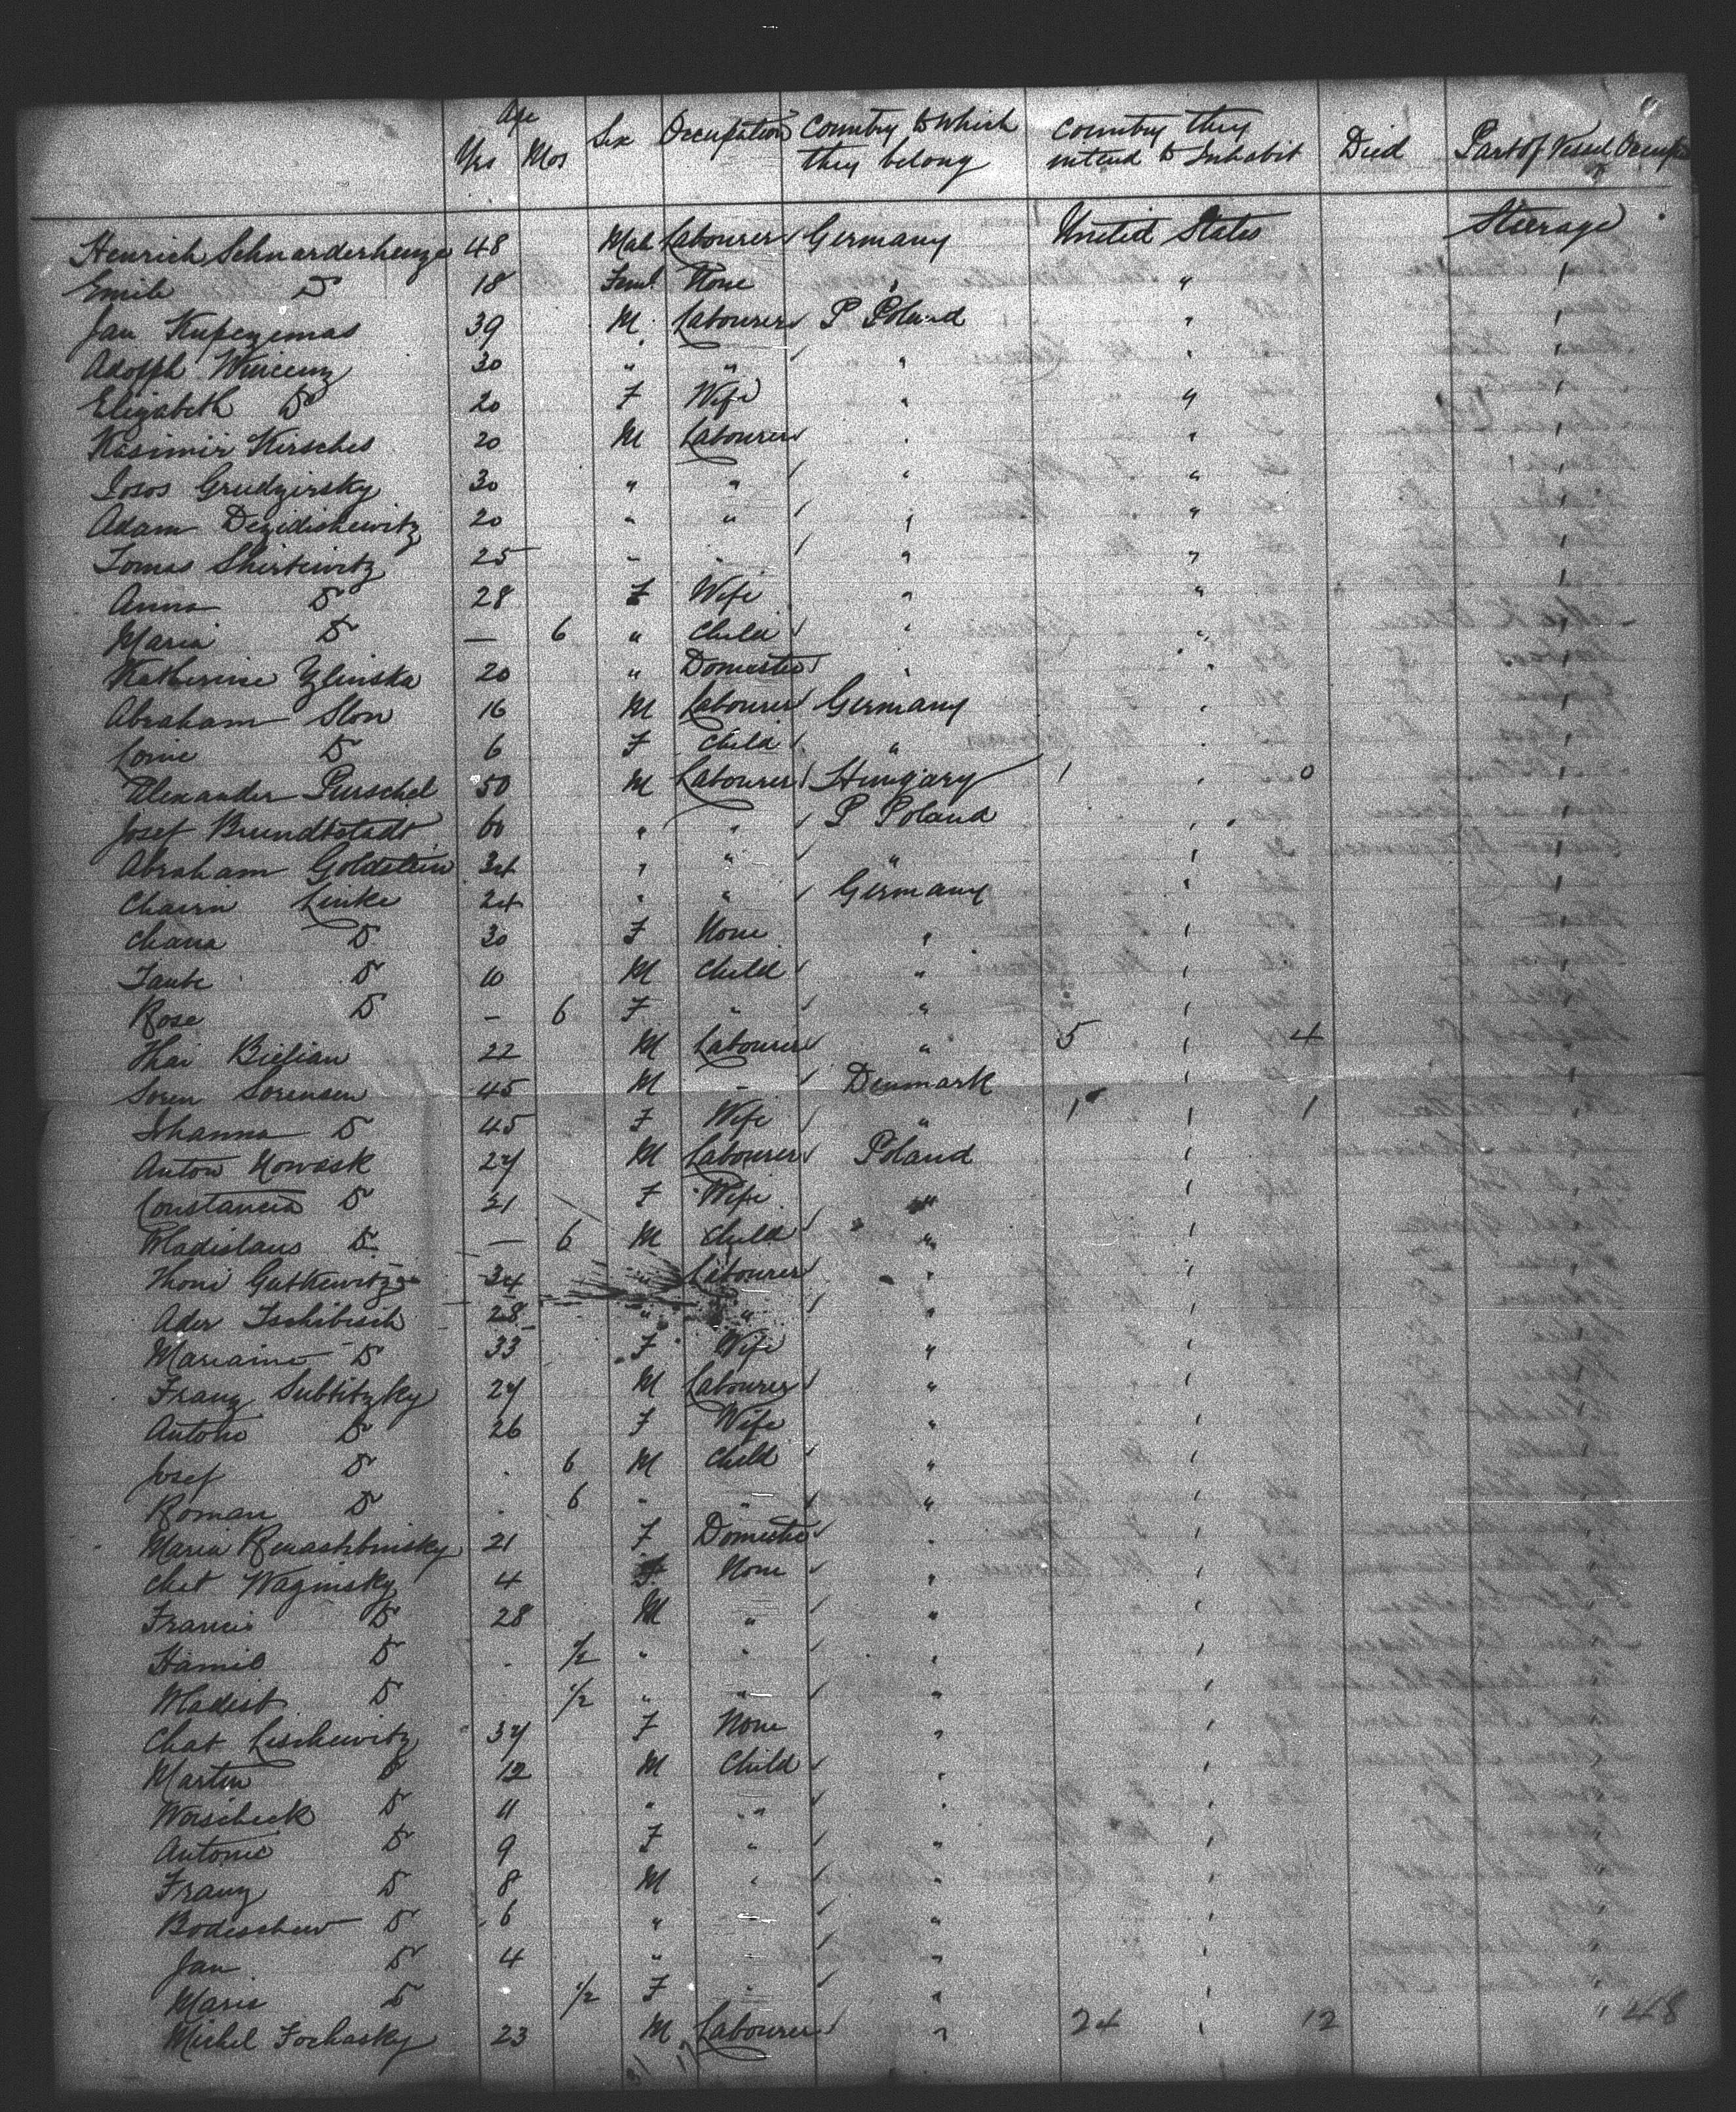 Age
Yrs Mos Sex Occupation Country to which they belong Country they intend to Inhabit Died Part of Vessel Occupied
Henrich Schnarderhenze 48 Male Labourer Germany United States Steerage
Emile Do 18 Feml None " " "
Jan Kupczemas 39 M Labourer P Poland " "
Adolph Wincenz 30 " " " " "
Elizabeth Do 20 F Wife " " "
Kasimir Kirsches 20 M Labourer " " "
Josos Grudzirsky 30 " " " " "
Adam Dezidishewitz 20 " " " " "
Tomas Shirtewitz 25 " " " " "
Anna Do 28 F Wife " " "
Maria Do — 6 " Child " " "
Katherine Zlinska 20 " Domestic " " "
Abraham Slon 16 M Labourer Germany " "
Do 6 F Child " " "
Alexander Purschel 50 M Labourer Hungary 1 " 0 "
Josef Brundtstadt 60 " " P Poland " "
Abraham Goldstein 34 " " " " "
Chairn Linke 24 " " Germany " "
Chana Do 30 F None " " "
Taube Do 10 M Child " " "
Rose Do — 6 F " " " "
Thai Bielian 22 M Labourer " 5 " 4 "
Soren Sorensen 45 M " Denmark " "
Johanna Do 45 F Wife " 1 " 1 "
Anton Nowask 27 M Labourer Poland " "
Constancia Do 21 F Wife " " "
Wladislaus Do — 6 M Child " " "
Thoni Gutkewitz 34 " Labourer " " "
Ader Tschibisch 28 " " " " "
Mariaine Do 33 F Wife " " "
Franz Subtitzky 27 M Labourer " " "
Antone Do 26 F Wife " " "
Josef Do 6 M Child " " "
Roman Do 6 " " " " "
Maria 21 F Domestic " " "
Chet Waginsky 4 F None " " "
Francis Do 28 M " " " "
Hamil Do 1/2 " " " " "
Wladist Do 1/2 " " " " "
Chat Lischewitz 37 F None " " "
Martin Do 12 M Child " " "
Worscheck Do 11 " " " " "
Antonie Do 9 F " " " "
Franz Do 8 M " " " "
Bodeschew Do 6 " " " " "
Jan Do 4 " " " " "
Marie Do 1/2 F " " " "
Michel Tochasky 23 M Labourer " 24 " 12 " 48
31 17